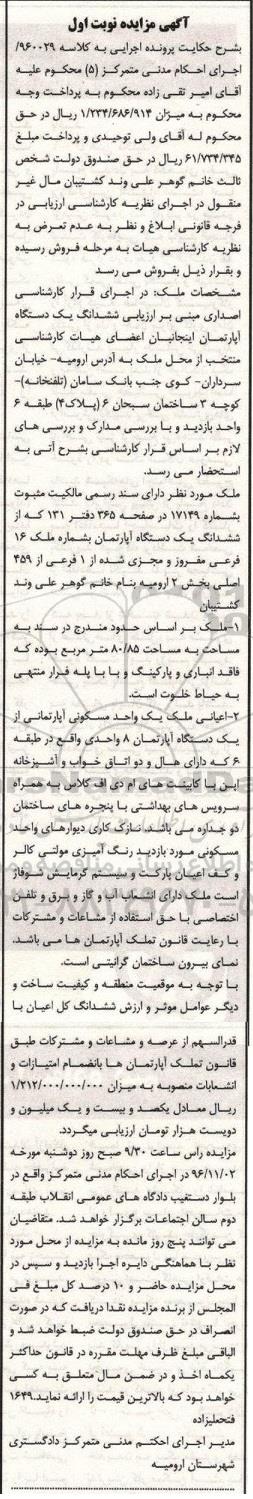 آگهی مزایده نوبت اول
بشرح حکایت پرونده اجرایی به کلاسه ۹۶۰۰۲۹/
اجرای احکام مدنی متمرکز (۵) محکوم علیه
آقای امیر تقی زاده محکوم به پرداخت وجه
محکوم به میزان ۱/۲۳۴/۶۸۶/۹۱۴ ریال در حق
محکوم له آقای ولی توحیدی و پرداخت مبلغ
۶۱/۷۳۴/۳۴۵ ریال در حق صندوق دولت شخص
ثالث خانم گوهر علی وند کشتیبان مال غیر
منقول در اجرای نظریه کارشناسی ارزیابی در
فرجه قانونی ابلاغ و نظر به عدم تعرض به
نظریه کارشناسی هیات به مرحله فروش رسیده
و بقرار ذیل بفروش می رسد
مشخصات ملک: در اجرای قرار کارشناسی
اصداری مبنی بر ارزیابی ششدانگ یک دستگاه
آپارتمان اینجانبان اعضای هیات کارشناسی
منتخب از محل ملک به آدرس ارومیه- خیابان
سرداران- کوی جنب بانک سامان (تلفنخانه)-
کوچه ۳ ساختمان سبحان ۶ (پلاک۴) طبقه ۶
واحد بازدید و با بررسی مدارک و بررسی های
لازم بر اساس قرار کارشناسی بشرح آتی به
استحضار می رسد.
ملک مورد نظر دارای سند رسمی مالکیت مثبوت
بشماره ۱۷۱۴۹ در صفحه ۳۶۵ دفتر ۱۳۱ که از
ششدانگ یک دستگاه آپارتمان بشماره ملک ۱۶
فرعی مفروز و مجزی شده از ۱ فرعی از ۴۵۹
اصلی بخش ۲ ارومیه بنام خانم گوهر علی وند
کشتیبان
۱-ملک بر اساس حدود مندرج در سند به
مساحت به مساحت ۸۰/۸۵ متر مربع بوده که
فاقد انباری و پارکینگ و با با پله فرار منتهی
به حیاط خلوت است.
۲-اعیانی ملک یک واحد مسکونی آپارتمانی از
یک دستگاه آپارتمان ۸ واحدی واقع در طبقه
۶ که دارای هال و دو اتاق خواب و آشپزخانه
اپن با کابینت های ام دی اف کلاس به همراه
سرویس های بهداشتی با پنجره های ساختمان
دو جداره می باشد. نازک کاری دیوارهای واحد
مسکونی مورد بازدید رنگ آمیزی مولتی کالر
و کف اعیان پارکت و سیستم گرمایش شوفاژ
است ملک دارای انشعاب آب و گاز و برق و تلفن
اختصاصی با حق استفاده از مشاعات و مشترکات
با رعایت قانون تملک آپارتمان ها می باشد.
نمای بیرون ساختمان گرانیتی است.
با توجه به موقعیت منطقه و کیفیت ساخت و
دیگر عوامل موثر و ارزش ششدانگ کل اعیان با
قدرالسهم از عرصه و مشاعات و مشترکات طبق
قانون تملک آپارتمان ها بانضمام امتیازات و
انشعابات منصوبه به میزان ۱/۲۱۲/۰۰۰/۰۰۰/۰۰۰
ریال معادل یکصد و بیست و یک میلیون و
دویست هزار تومان ارزیابی میگردد.
مزایده راس ساعت ۹/۳۰ صبح روز دوشنبه مورخه
۹۶/۱۱/۰۲ در اجرای احکام مدنی متمرکز واقع در
بلوار دستغیب دادگاه های عمومی انقلاب طبقه
دوم سالن اجتماعات برگزار خواهد شد. متقاضیان
می توانند پنج روز مانده به مزایده از محل مورد
نظر با هماهنگی دایره اجرا بازدید و سپس در
محل مزایده حاضر و ۱۰ درصد کل مبلغ فی
المجلس از برنده مزایده نقدا دریافت که در صورت
انصراف در حق صندوق دولت ضبط خواهد شد و
الباقی مبلغ ظرف مهلت مقرره در قانون حداکثر
یکماه اخذ و در ضمن مال متعلق به کسی
خواهد بود که بالاترین قیمت را ارائه نماید.۱۶۴۹
فتحعلیزاده
مدیر اجرای احکام مدنی متمرکز دادگستری
شهرستان ارومیه